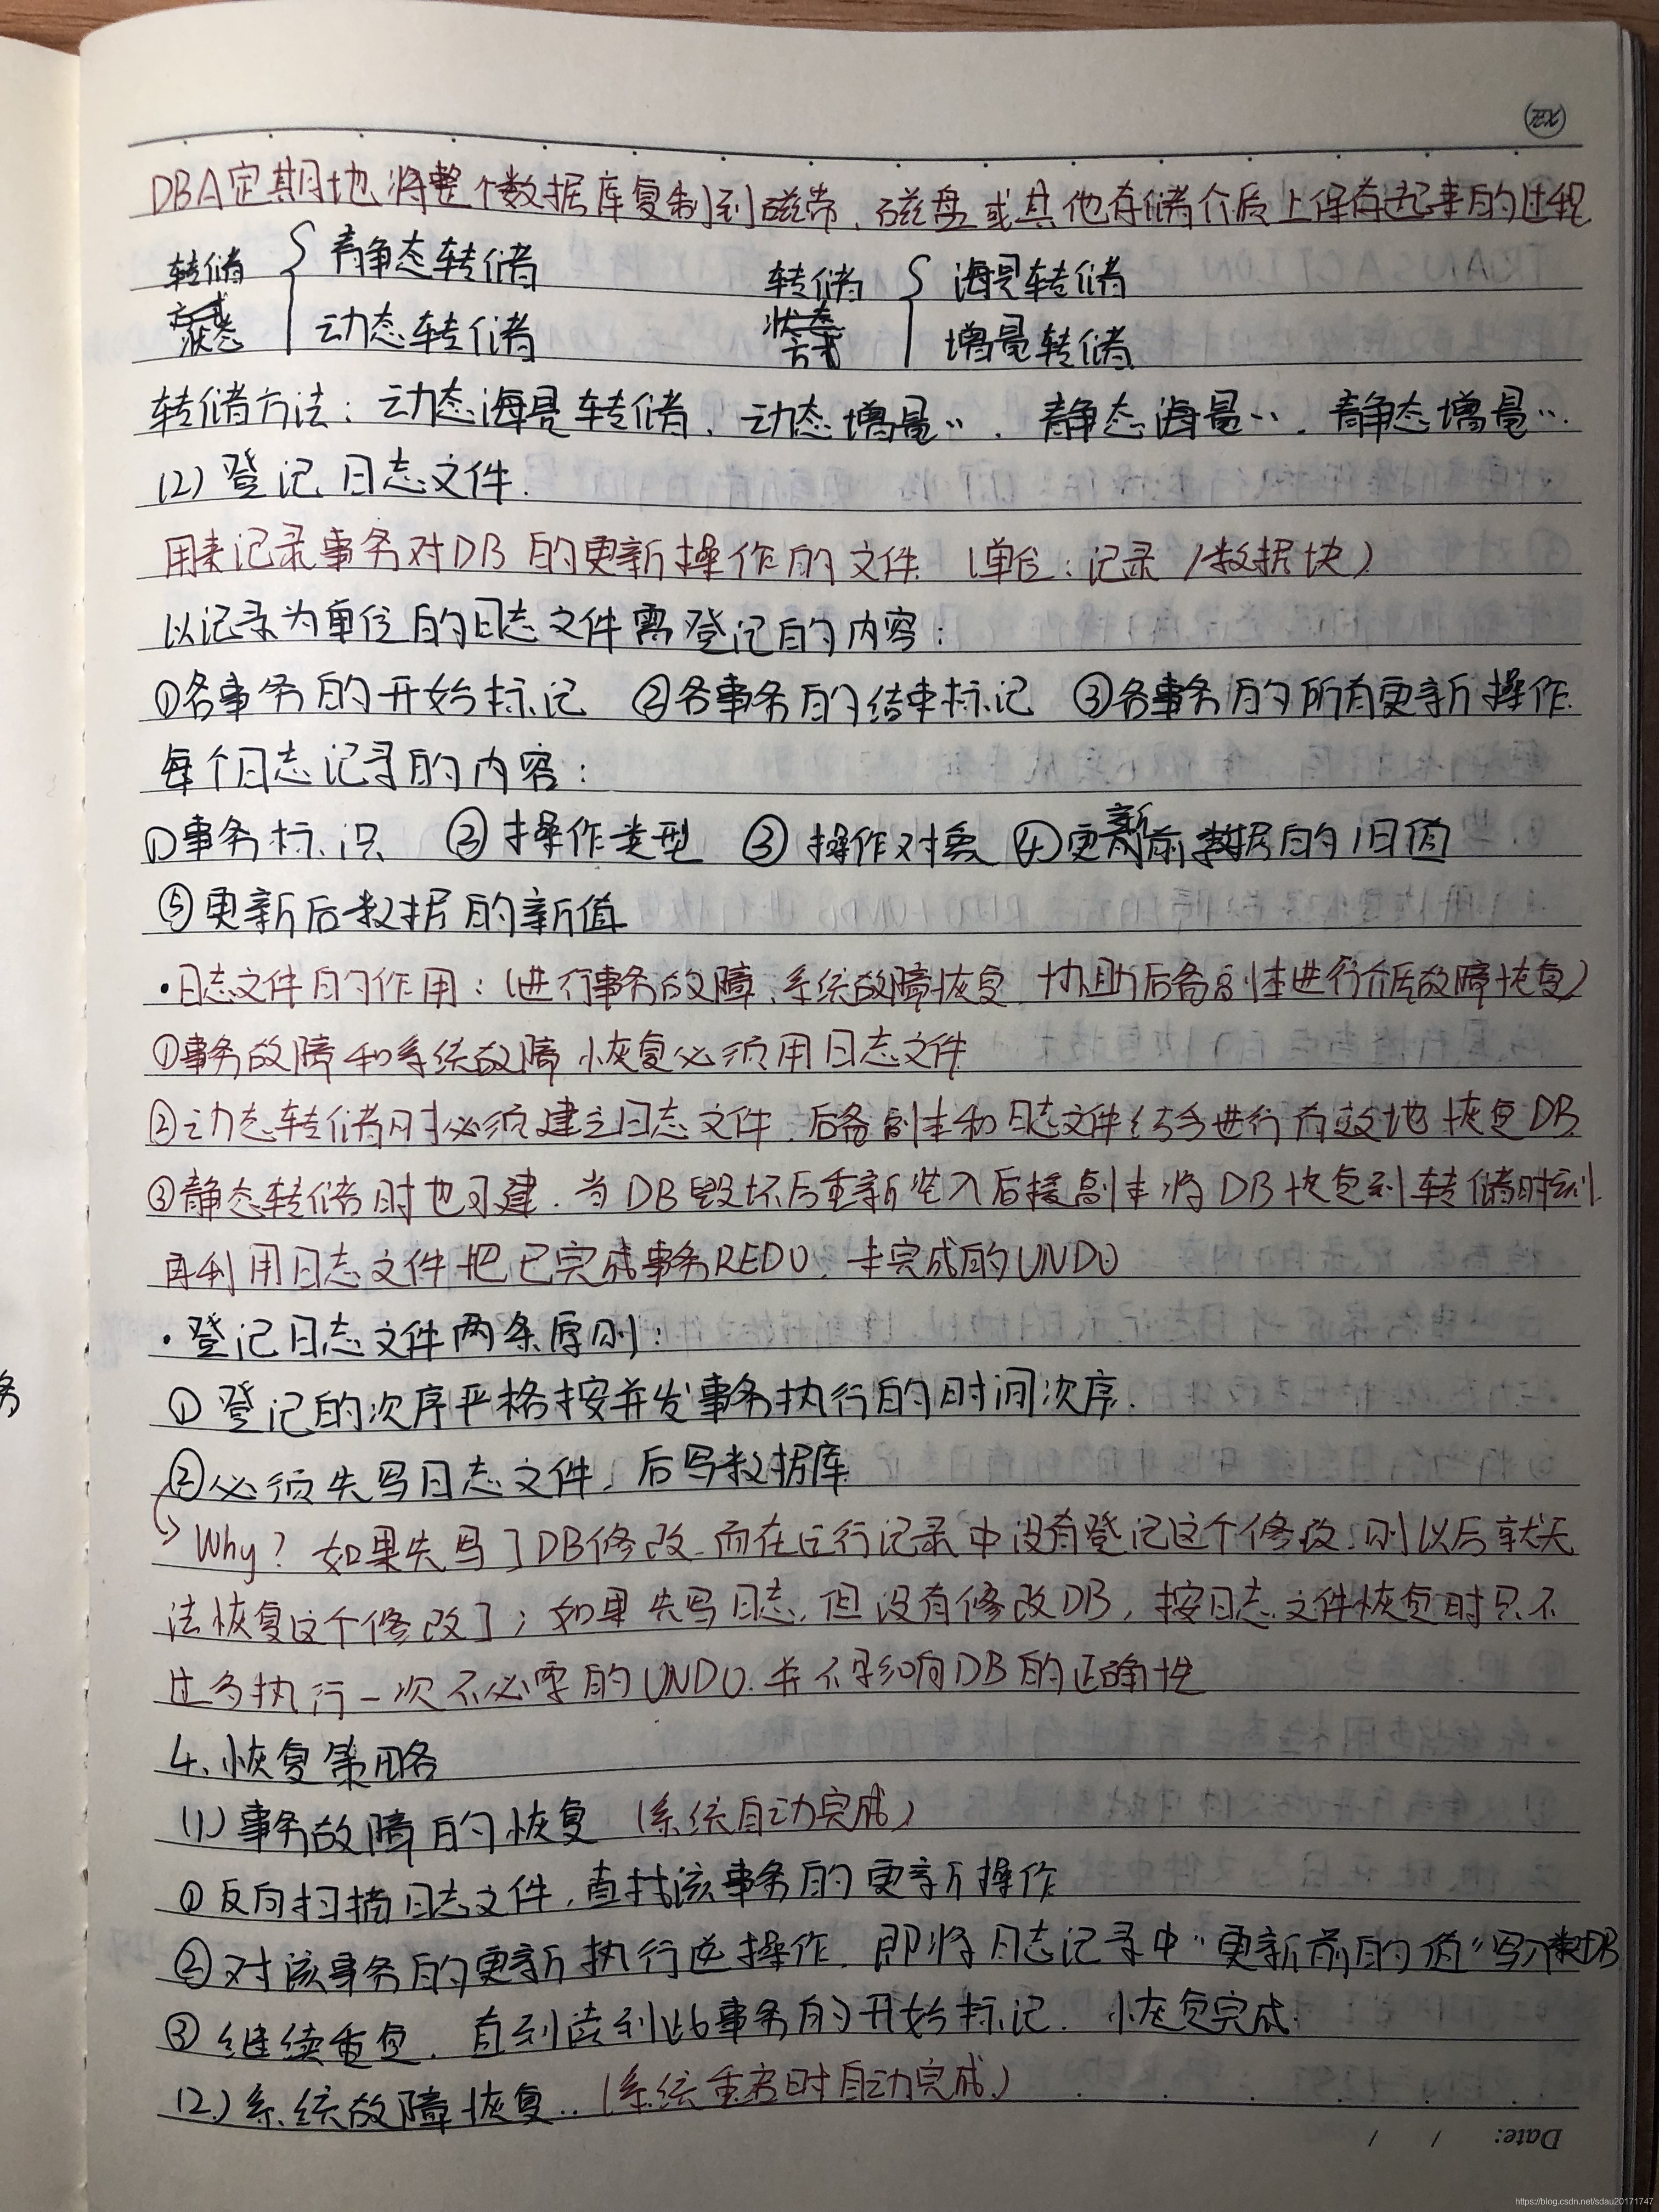 DBA定期地将整个数据库复制到磁带、磁盘或其他存储介质上保存起来的过程
转储状态 { 静态转储 动态转储
转储方式 { 海量转储 增量转储
转储方法：动态海量转储、动态增量‥、静态海量‥、静态增量‥.
(2) 登记日志文件.
用来记录事务对DB的更新操作的文件 (单位：记录/数据块)
以记录为单位的日志文件需登记的内容：
①各事务的开始标记 ②各事务的结束标记 ③各事务的所有更新操作.
每个日志记录的内容：
①事务标识 ②操作类型 ③操作对象 ④更新前数据的旧值
⑤更新后数据的新值
·日志文件的作用：(进行事务故障、系统故障恢复 协助后备副本进行介质故障恢复)
①事务故障和系统故障恢复必须用日志文件
②动态转储时必须建立日志文件、后备副本和日志文件结合进行有效地恢复DB.
③静态转储时也可建、当DB毁坏后重新装入后援副本将DB恢复到转储时刻.
再利用日志文件把已完成事务REDO、未完成的UNDO
·登记日志文件两条原则：
①登记的次序严格按并发事务执行的时间次序.
②必须先写日志文件，后写数据库
Why? 如果先写了DB修改、而在运行记录中没有登记这个修改、则以后就无
法恢复这个修改了；如果先写日志，但没有修改DB，按日志文件恢复时只不
过多执行一次不必要的UNDO.并不影响DB的正确性
4、恢复策略
(1)事务故障的恢复 (系统自动完成)
①反向扫描日志文件，查找该事务的更新操作
②对该事务的更新执行逆操作、即将日志记录中“更新前的值”写入DB
③继续重复、直到读到此事务的开始标记、恢复完成.
(2)系统故障恢复.. (系统重启时自动完成)
Date: / /
https://blog.csdn.net/sdau20171747